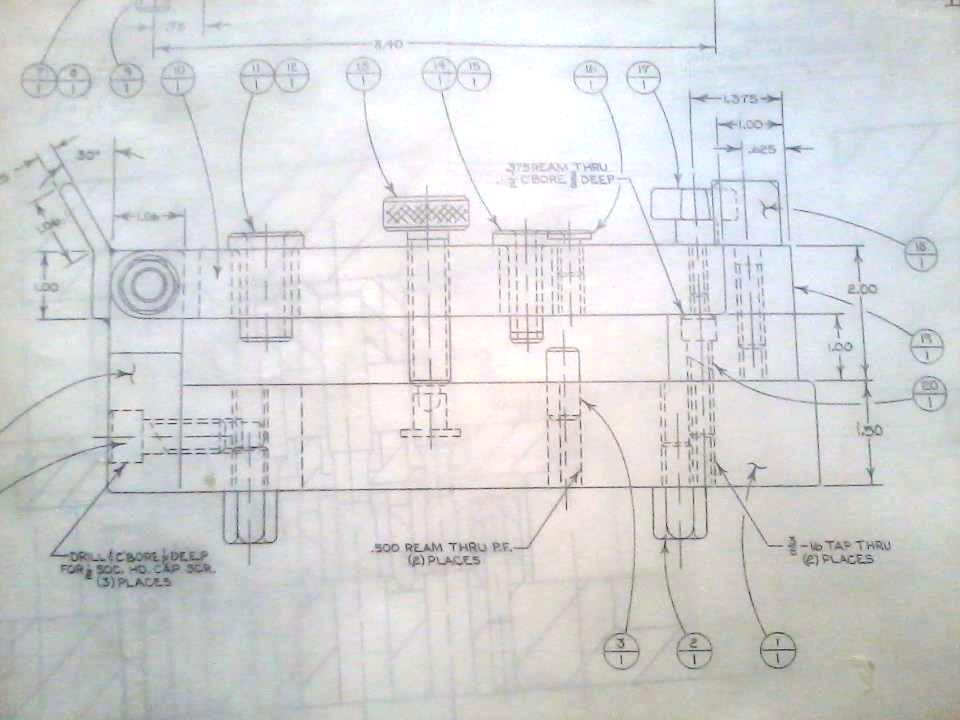 .75
8.40
7
1
8
1
9
1
10
1
11
1
12
1
13
1
14
1
15
1
16
1
17
1
1.375
1.00
.625
30°
1.06
1.00
1.00
.375 REAM THRU
C'BORE DEEP
18
1
2.00
19
1
1.00
20
1
1.50
DRILL & C'BORE DEEP
FOR ½ SOC. HD. CAP SCR.
(3) PLACES
.500 REAM THRU P.F.
(2) PLACES
-16 TAP THRU
(2) PLACES
3
1
2
1
1
1